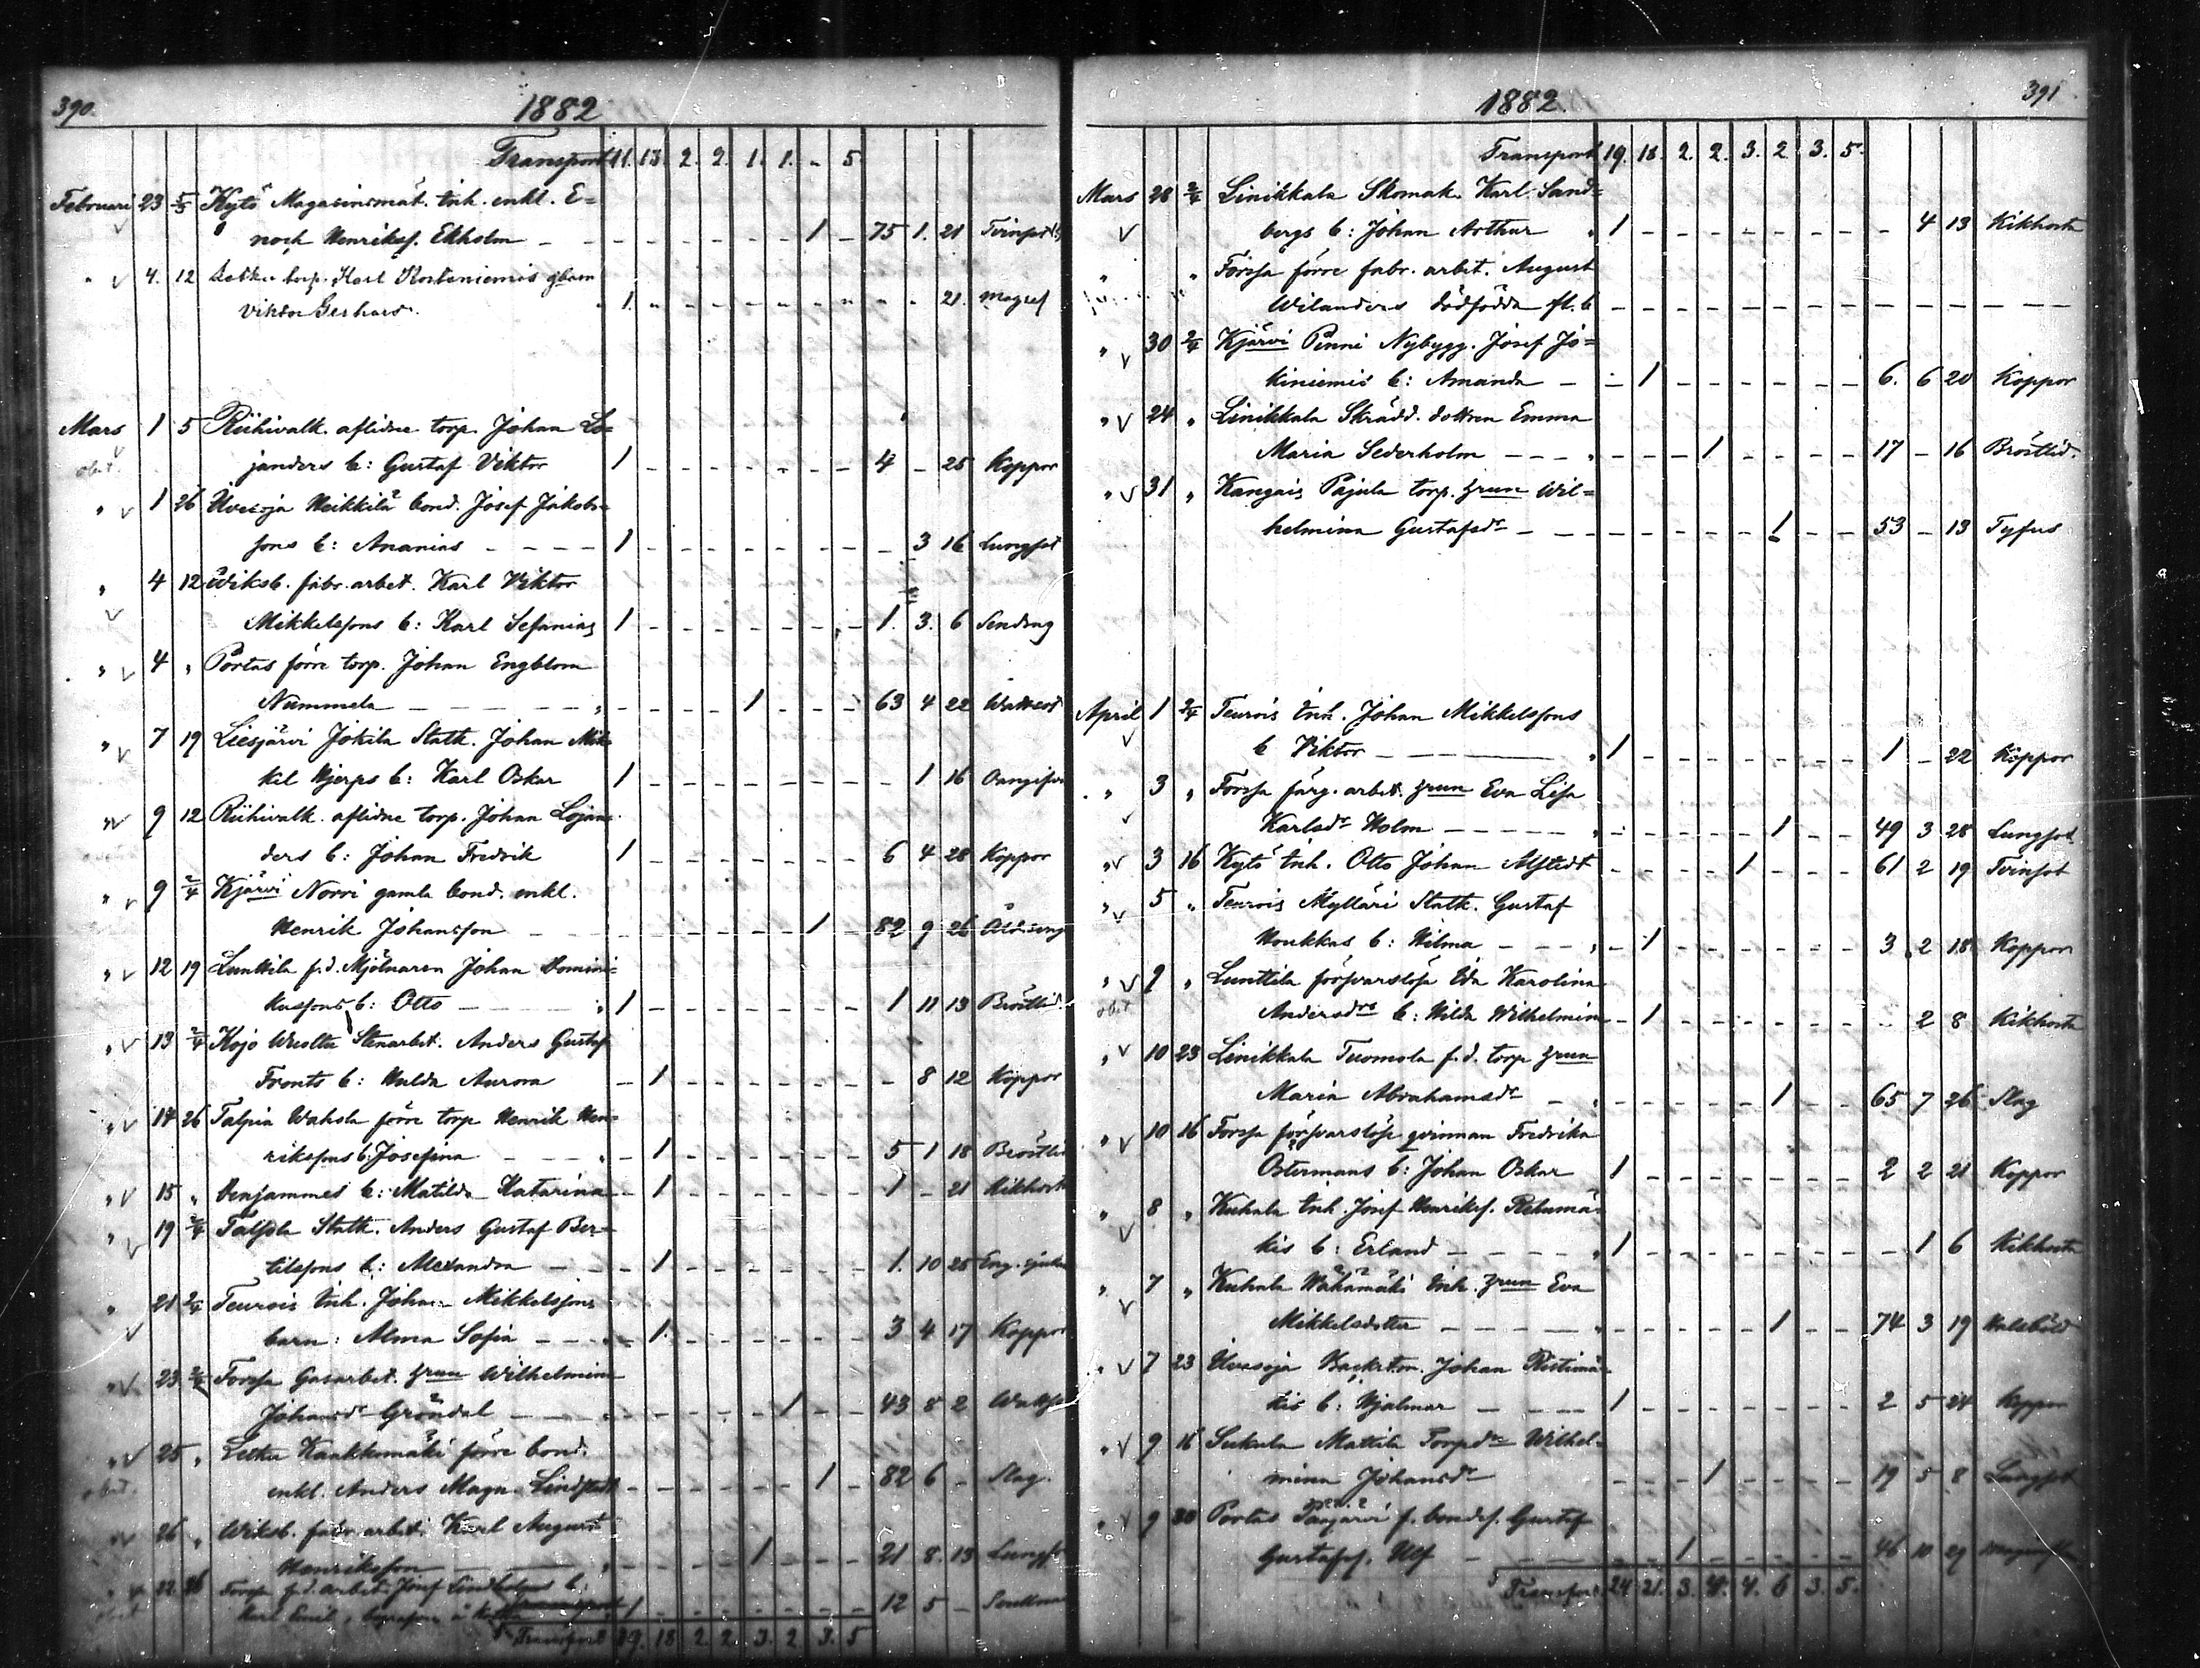 390.
1882
Transport 11. 13. 2. 2. 1. 1. - 5
Februari 23 5/3 Kytö Magasinsmät. inh. enkl. E=
noch Henrikss. Ekholm - - - 1 - 75 1. 21 Tvinsot
" 4. 12 torp. Karl Kosteniemis gbarn
Viktor Gerhard. 1. - - - 21. Magref
Mars 1 5 Riihivalk. aflidne torp. Johan Lo=
obet. janders b: Gustaf Viktor 1 - - - 4 - 25 Koppor
" 1 26 Uvesoja Heikkilä bond. Josef Jakobs=
sons b: Ananias - - - 1 - - - 3 16 Lungsot
" 4 12 Wiksb. fabr. arbet. Karl Viktor
Mikkelssons b: Karl Sefanias 1 - - - 1. 3. 6
" 4 " Portas förre torp. Johan Engblom
Nummela - - - 1 - - - 63 4 22 Wattsot
" 7 19 Liesjärvi Jokila Stath. Johan Mik=
kel Hjerps b: Karl Oskar 1 - - - 1 16
" 9 12 Riihivalk. aflidne torp. Johan Lojan=
ders b: Johan Fredrik 1 - - - 6 4 28 Koppor
" 9 2/4 Kjärvi Norri gamla bond. enkl.
Henrik Johansson - - - 1 - 82 9 26
" 12 19 Lunttila f.d. Mjölnaren Johan Domini=
kussons b: Otto - - - 1 - - - 1 11 13 Bröstlid.
" 13 2/4 Kojo Stenarbet. Anders Gustaf
Fronts b: Hulda Aurora - 1 - - - 8 12 Koppor
" 14 26 Talpia Wahsla förre torp Henrik Hen=
rikssons b: Josefina - - - 1 - - - 5 1 18 Bröstlid
" 15 " Benjammes b: Matilda Katarina - 1 - - - 1 - 21 Kikhosta
" 19 2/4 Stath. Anders Gustaf Ber=
tilssons b: Alexandra - - - 1 - - - 1. 10 25 Eng. sjuka
" 21 2/4 Teurois inh. Johan Mikkelssons
barn: Alma Sofia - - - 1. - - - 3 4 17 Koppor
" 23 2/4 Forssa Gasarbet. hrun Wilhelmina
Johansdr Gröndal - - - 1 - - 43 8 2 Wattsot
" 25 " Letku Kaukkomäki förre bond.
obet. enkl. Anders Magn. Lindstedt - - - 1 - 82 6 - Slag.
" 26 " Wiksb. fabr arbet. Karl August
Henriksson - - - 1 - - - 21 8. 13 Lungsot
" 22. 26 Forssa f.d. arbet. Josef Lindholms b:
Karl Emil, 1 - - - 12 5 -
Transport 19. 18 2. 2. 3. 2. 3. 5
391
1882.
Transport 19. 18. 2. 2. 3. 2 3. 5.
Mars 28 2/4 Linikkala Skomak. Karl Sand=
bergs b: Johan Arthur 1 - - - 4 13 Kikhosta
" " Forssa förre fabr. arbet. August
Wilanders dödfödda fl. b - - -
" 30 2/4 Kjärvi Penni Nybygg. Josef Jo=
kiniemis b: Amanda - - 1 - - - 6. 6 20 Koppor
" 24 " Linikkala Skrädd. dottren Emma
Maria Sederholm - - - 1 - - - 17 - 16 Bröstlid.
" 31 " Kangais Pajula torp. hrun Wil=
helmina Gustafsdr - - - 1 - - 53 - 13 Tyfus
April 1 2/4 Teurois inh. Johan Mikkelssons
b Viktor - - - 1 - - - 1 - 22 Koppor
" 3 " Forssa färg. arbet. hrun Eva Lisa
Karlsdr Holm - - - 1 - - 49 3 28 Lungsot
" 3 16 Kytö inh. Otto Johan Alstedt - - - 1 - - - 61 2 19 Tvinsot
" 5 " Teurois Mylläri Stath. Gustaf
Houkkas b: Hilma - - - 1 - - - 3 2 18 Koppor
" 9 " Lunttila försvarslösa Ida Karolina
obet Andersdrs b: Hilda Wilhelmina - 1 - - - 2 8 Kikhosta
" 10 23 Linikkala Tuomola f.d. torp hrun
Maria Abrahamsdr - - - 1 - - 65 7 26 Slag
" 10 16 Forssa försvarslösa qvinnan Fredrika
Östermans b: Johan Oskar 1 - - - 2 2 21 Koppor
" 8 " Kuhala inh. Josef Henrikss. Rehumä=
kis b: Erland - - - 1 - - - 1 6 Kikhosta
" 7 " Kuhala Wähämäki inh. hrun Eva
Mikkelsdotter - - - 1 - - 74 3 19 Halsböld
" 7 23 Uvesoja Backstm. Johan Ristimä=
kis b: Hjalmar - - - 1 - - - 2 5 24 Koppor
" 9 16 Sukula Mattila Torpdr Wilhel=
mina Johansdr - - - 1 - - - 19 5 8 Lungsot
" 9 30 Portas f. bondes. Gustaf
Gustafss. Ulf - - - 1 - - - 46 10 29
Transport 24 21. 3. 4. 4. 6 3. 5.